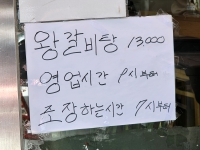 왕갈비탕 13,000
영업시간 9시부터
포장하는시간 7시부터